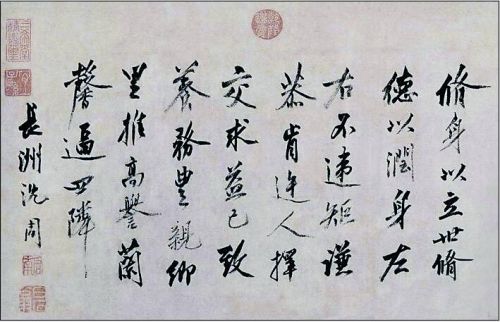 脩身以立世脩
德以潤身左
右不違矩謙
恭肯迕人擇
交求益己致
養務豊親鄉
里推高譽蘭
馨逼四隣
長洲沈周